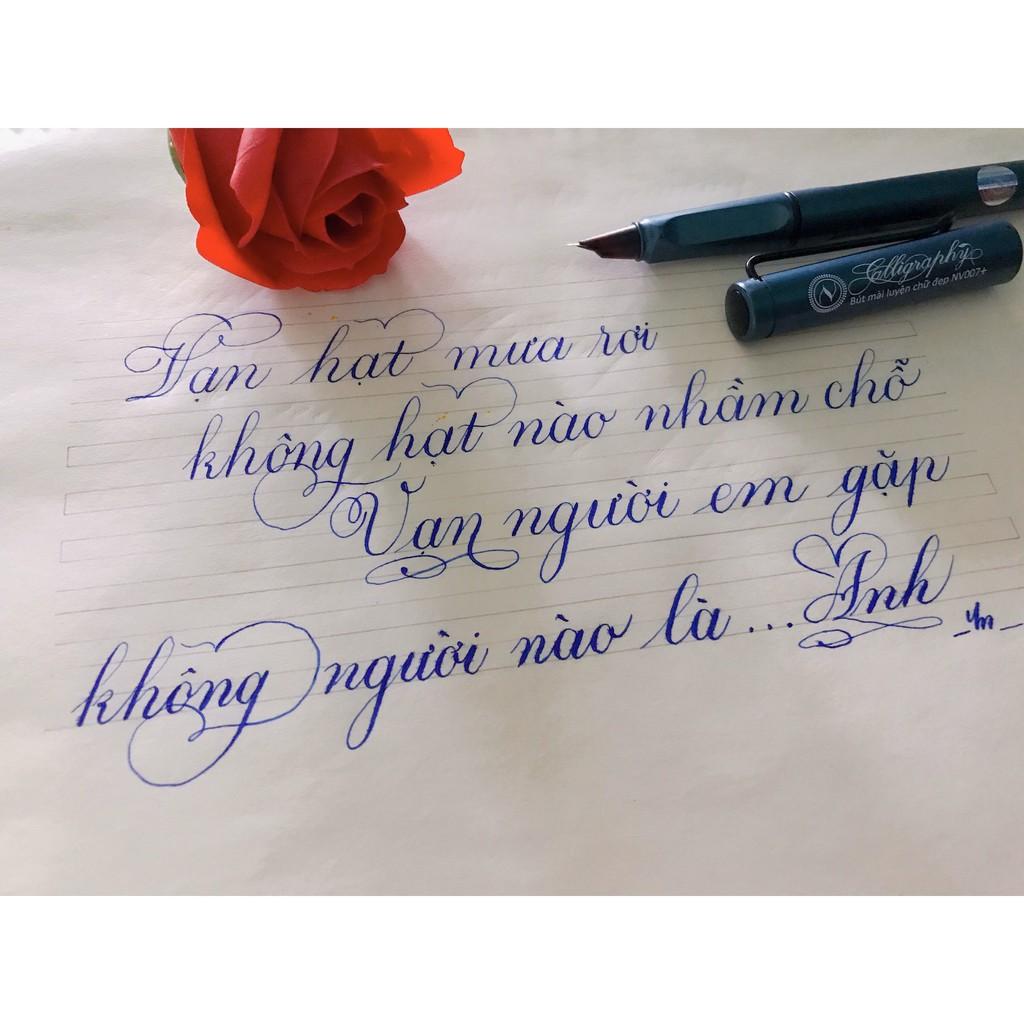 Vạn hạt mưa rơi
không hạt nào nhầm chỗ
Vạn người em gặp
không người nào là...Anh
Calligraphy
Bút mài luyện chữ đẹp NV007+
N